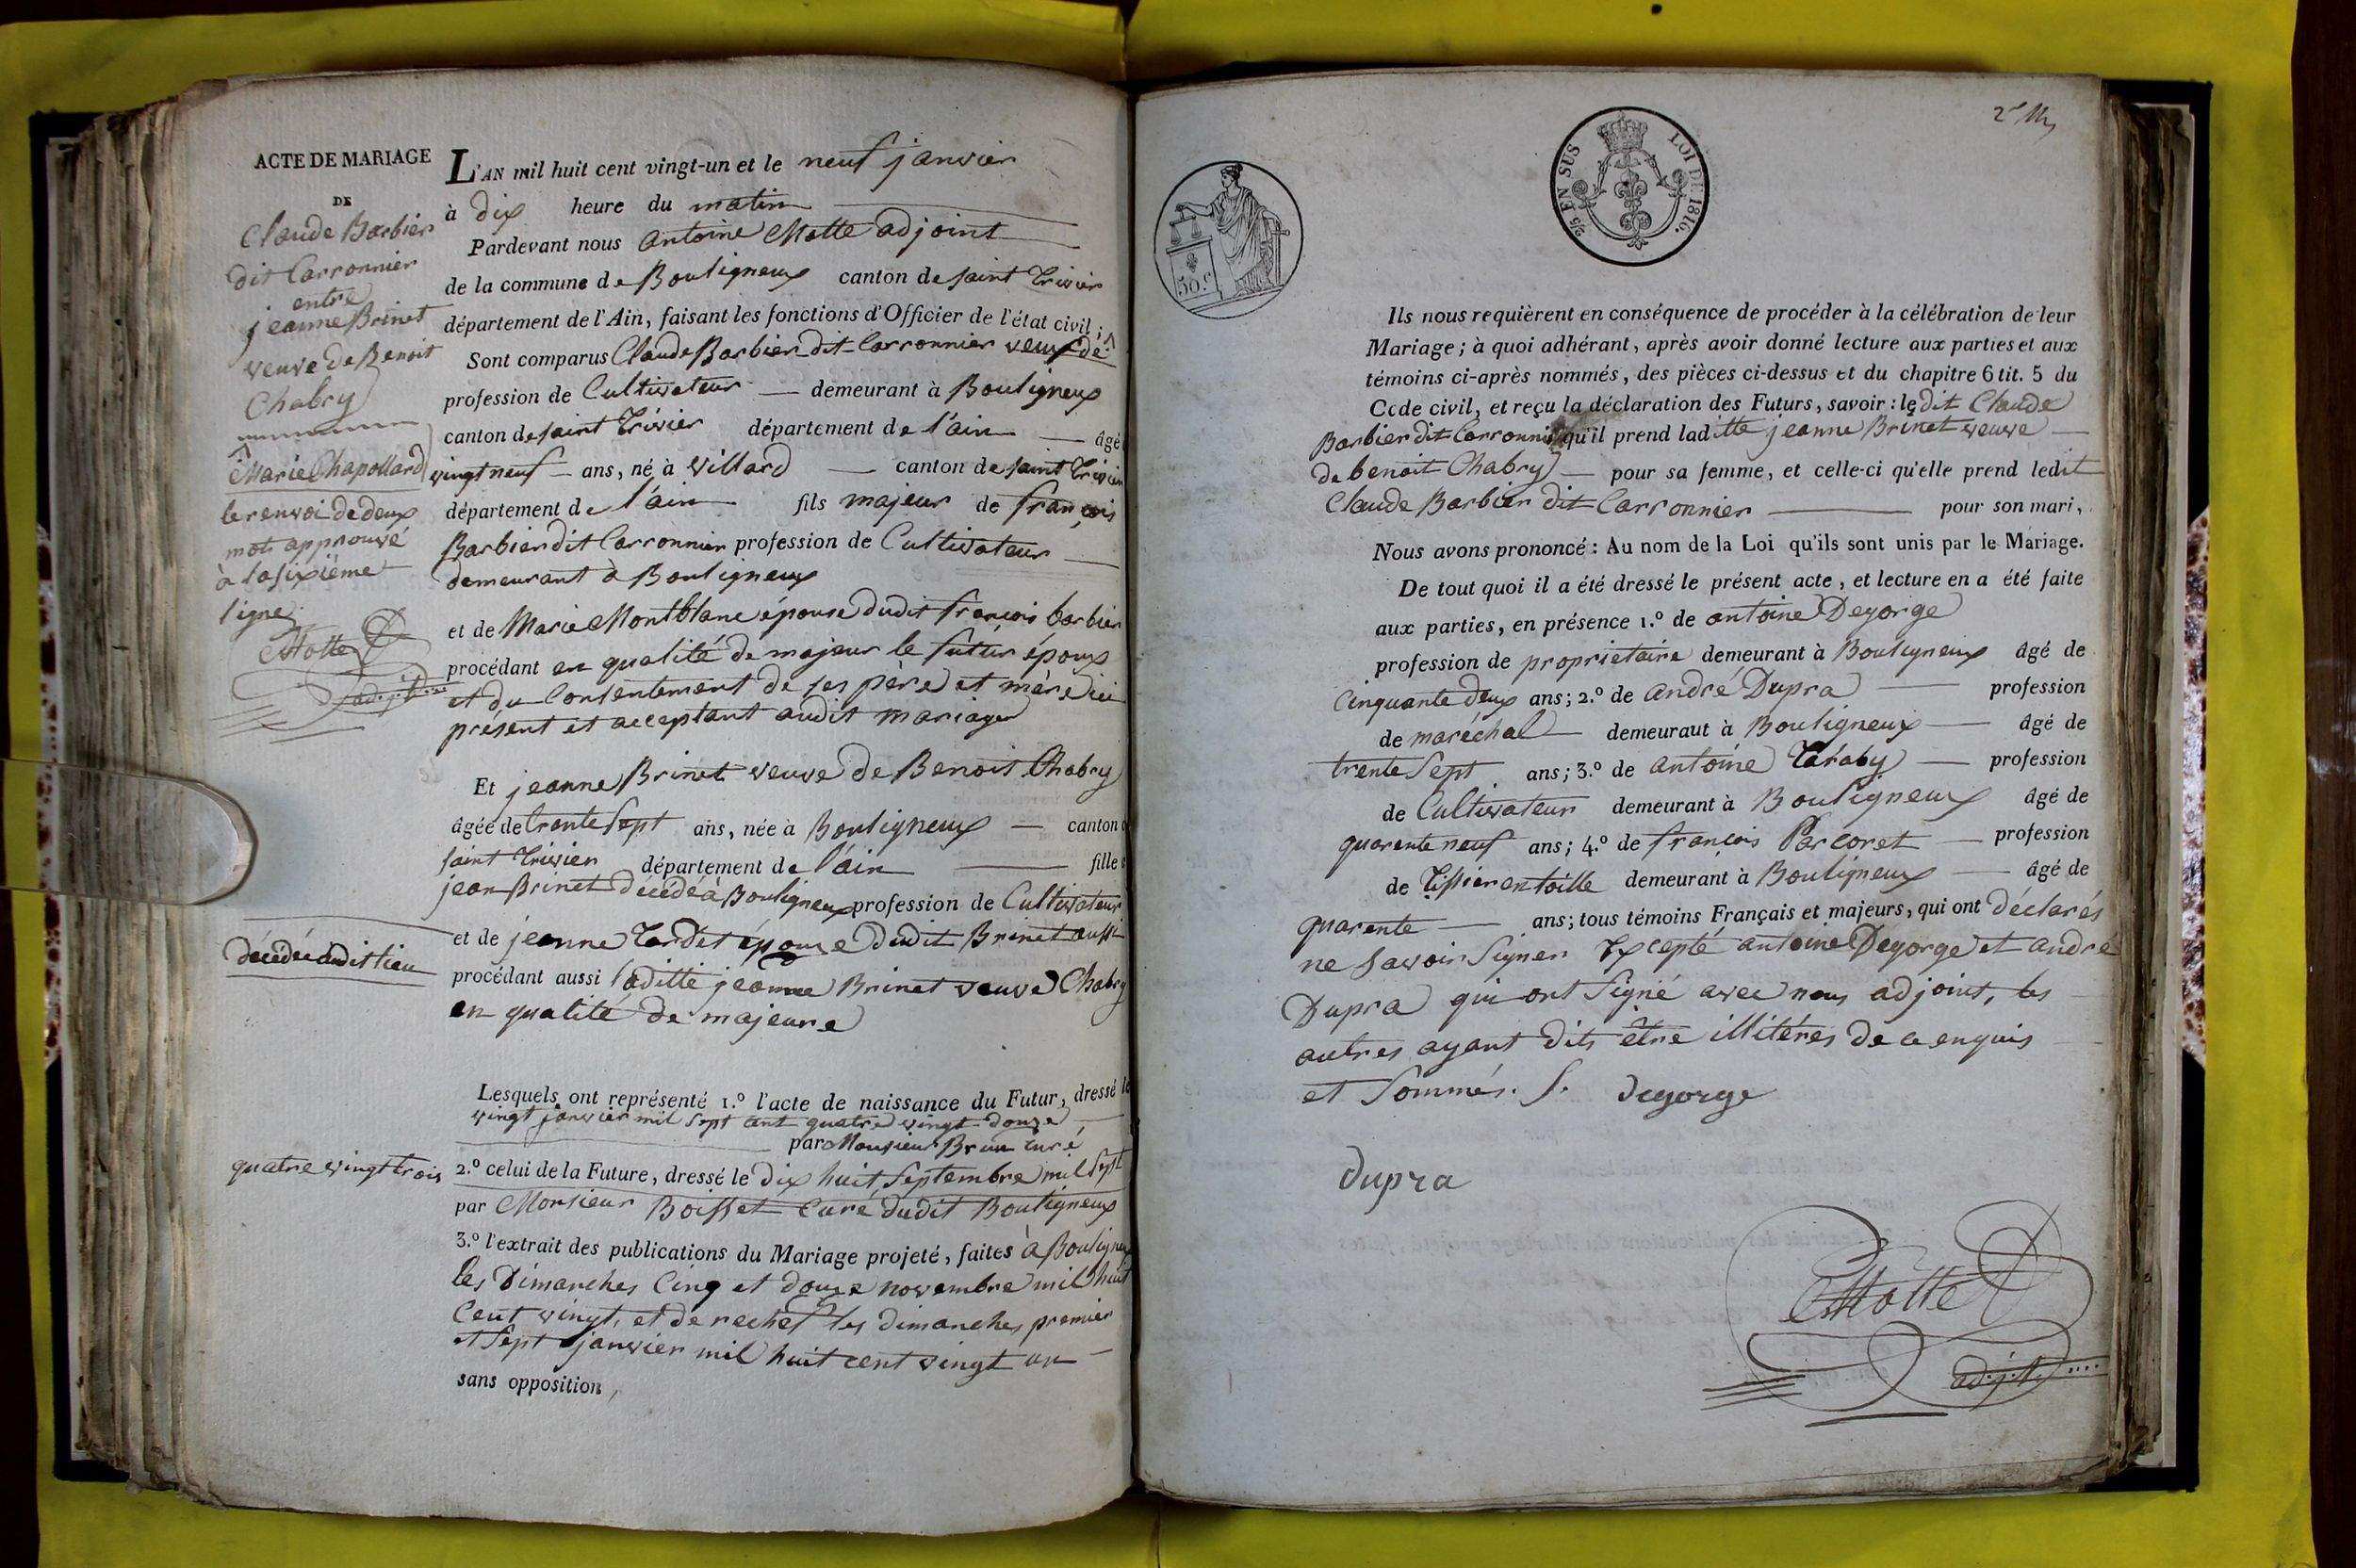 ACTE DE MARIAGE
DE
Claude Barbier
dit Carronnier
entre
jeanne Brinet
veuve de Benoit
Chabry
Marie Chapollard
le renvoi de deux
mots approuvé
à la sixième
ligne
CMotte
adjt
décédée audit lieu
quatre vingt trois
L'AN mil huit cent vingt-un et le neuf janvier
à dix heure du matin
Pardevant nous antoine Motte adjoint
de la commune de Bouligneux canton de saint Trivier
département de l'Ain, faisant les fonctions d'Officier de l'état civil ;
Sont comparus Claude Barbier dit Carronnier veuf de
profession de Cultivateur demeurant à Bouligneux
canton de saint Trivier département de l'ain âgé
vingt neuf ans, né à villard canton de saint Trivier
département de l'ain fils majeur de françois
Barbier dit Carronnier profession de Cultivateur
demeurant à Bouligneux
et de Marie Montblanc épouse dudit françois barbier
procédant en qualité de majeur le futur époux
et du Consentement de ses père et mère ici
présent et acceptant audit mariage
Et jeanne Brinet veuve de Benoit Chabry
âgée de trente sept ans, née à Bouligneux canton
saint Trivier département de l'ain fille
jean Brinet décédé à Bouligneux profession de Cultivateur
et de jeanne Tardet épouse dudit Brinet aussi
procédant aussi laditte jeanne Brinet veuve Chabry
en qualité de majeure
Lesquels ont représenté 1.º l'acte de naissance du Futur, dressé le
vingt janvier mil sept cent quatre vingt douze
par Monsieur Brun curé
2.º celui de la Future, dressé le dix huit septembre mil sept
par Monsieur Boisset Curé dudit Bouligneux
3.º l'extrait des publications du Mariage projeté, faites à Bouligneux
les Dimanches Cinq et douze novembre mil huit
Cent vingt, et de rechef les dimanches premier
et sept janvier mil huit cent vingt un
sans opposition,
2e
5/10 EN SUS LOI DE 1816.
50.c
Ils nous requièrent en conséquence de procéder à la célébration de leur
Mariage ; à quoi adhérant, après avoir donné lecture aux parties et aux
témoins ci-après nommés, des pièces ci-dessus et du chapitre 6 tit. 5 du
Code civil, et reçu la déclaration des Futurs, savoir : ledit Claude
Barbier dit Carronnier qu'il prend laditte jeanne Brinet veuve
de benoit Chabry pour sa femme, et celle-ci qu'elle prend ledit
Claude Barbier dit Carronnier pour son mari,
Nous avons prononcé : Au nom de la Loi qu'ils sont unis par le Mariage.
De tout quoi il a été dressé le présent acte, et lecture en a été faite
aux parties, en présence 1.º de antoine Degorge
profession de proprietaire demeurant à Bouligneux âgé de
Cinquante deux ans ; 2.º de andré Dupra profession
de maréchal demeuraut à Bouligneux âgé de
trente sept ans ; 3.º de antoine Taraby profession
de Cultivateur demeurant à Bouligneux âgé de
quarente neuf ans ; 4.º de françois Parcoret profession
de Tissier en toille demeurant à Bouligneux âgé de
quarente ans ; tous témoins Français et majeurs, qui ont déclarés
ne savoir signer Excepté antoine Degorge et andré
Dupra qui ont signé avec nous adjoint, les
autres ayant dits être illitéres de ce enquis
et Sommés. S. degorge
dupra
CMotte
adjt